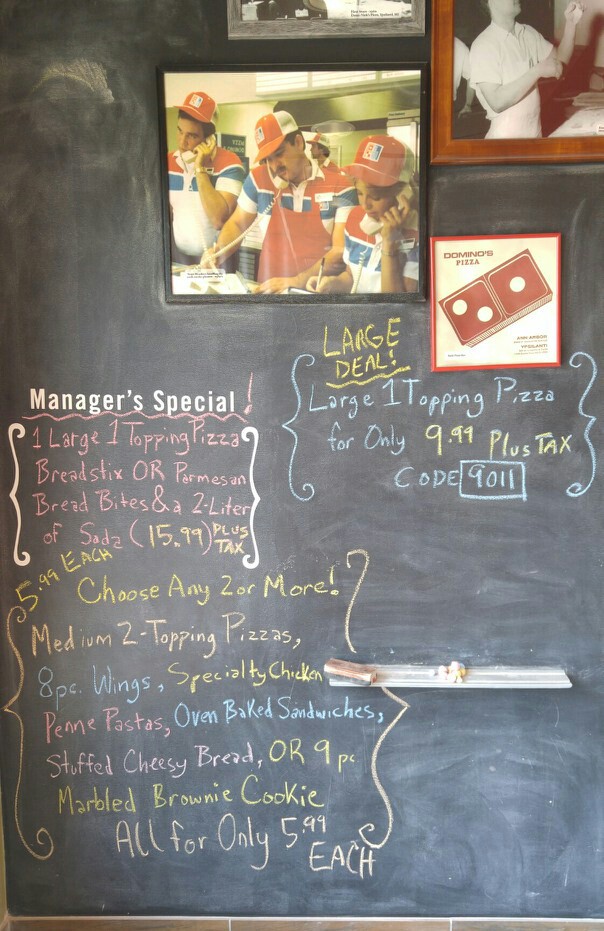 DOMINO'S
PIZZA
ANN ARBOR
YPSILANTI
LARGE
DEAL!
Large 1 Topping Pizza
for Only 9.99 Plus TAX
CODE 9011
Manager's Special!
1 Large 1 Topping Pizza
Breadstix OR Parmesan
Bread Bites & a 2-Liter
of Soda (15.99) PLUS
TAX
5.99 EACH
Choose Any 2 or More!
Medium 2-Topping Pizzas,
8pc. Wings, Specialty Chicken
Penne Pastas, Oven Baked Sandwiches,
Stuffed Cheesy Bread, OR 9 pc
Marbled Brownie Cookie
All for Only 5.99
EACH